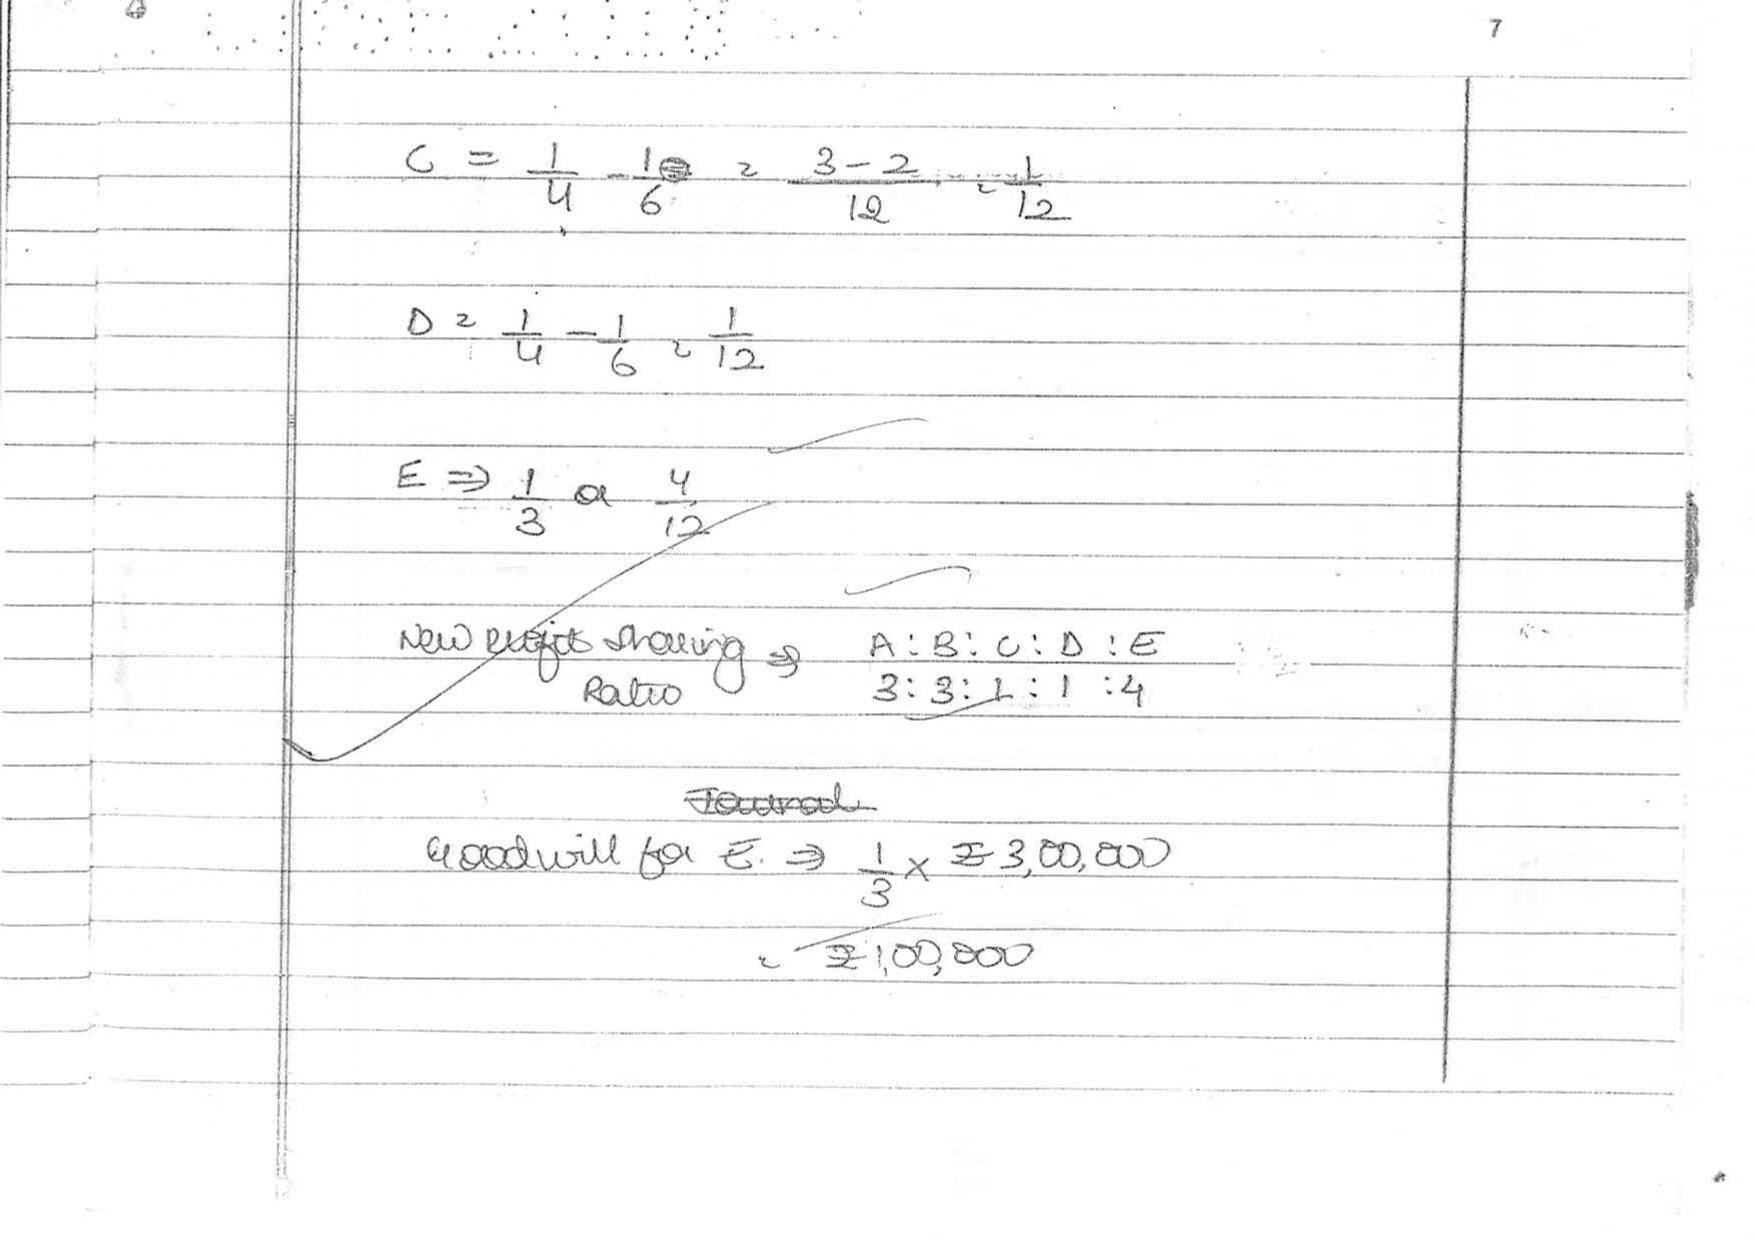 7
C = 1/4 - 1/6 = 3-2/12 = 1/12
D = 1/4 - 1/6 = 1/12
E ⇒ 1/3 or 4/12
New Profit Sharing Ratio ⇒ A : B : C : D : E
3 : 3 : 1 : 1 : 4
Journal
Goodwill for E. ⇒ 1/3 × ₹3,00,000
= ₹1,00,000